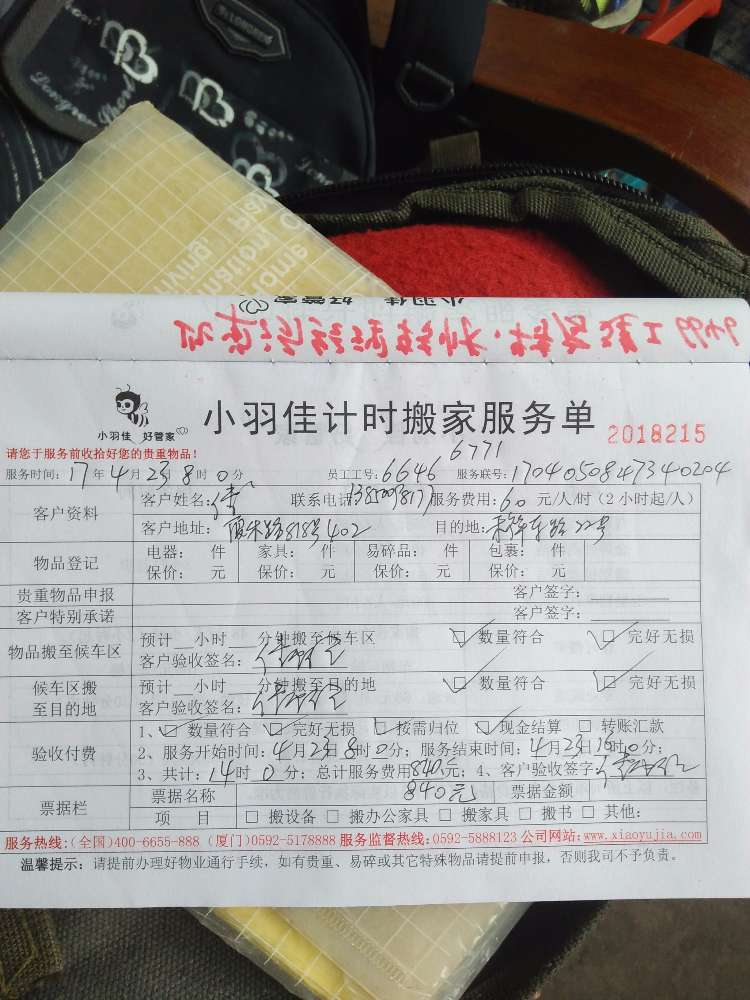 小羽佳 好管家
小羽佳 好管家
小羽佳计时搬家服务单
2018215
请您于服务前收拾好您的贵重物品!
6771
服务时间:17年4月23日8时0分 员工工号:6646 服务联号:1704050847340204
客户资料
客户姓名: 联系电话 服务费用:60元/人/时(2小时起/人)
客户地址: 818号402 目的地: 22号
物品登记
电器: 件 家具: 件 易碎品: 件 包裹: 件
保价: 元 保价: 元 保价: 元 保价: 元
贵重物品申报 客户签字:
客户特别承诺 客户签字:
物品搬至候车区
预计__小时__分钟搬至候车区 ☑ 数量符合 ☑ 完好无损
客户验收签名:
候车区搬至目的地
预计__小时__分钟搬至目的地 ☑ 数量符合 ☑ 完好无损
客户验收签名:
验收付费
1、☑ 数量符合 ☑ 完好无损 ☑ 按需归位 ☑ 现金结算 □ 转账汇款
2、服务开始时间:4月23日8时0分;服务结束时间:4月23日16时0分;
3、共计:14时0分;总计服务费用840元;4、客户验收签字:
票据栏
票据名称 840元 票据金额
项 目 □ 搬设备 □ 搬办公家具 □ 搬家具 □ 搬书 □ 其他:
服务热线:(全国)400-6655-888 (厦门)0592-5178888 服务监督热线:0592-5888123 公司网站:www.xiaoyujia.com
温馨提示:请提前办理好物业通行手续,如有贵重、易碎或其它特殊物品请提前申报,否则我司不予负责。